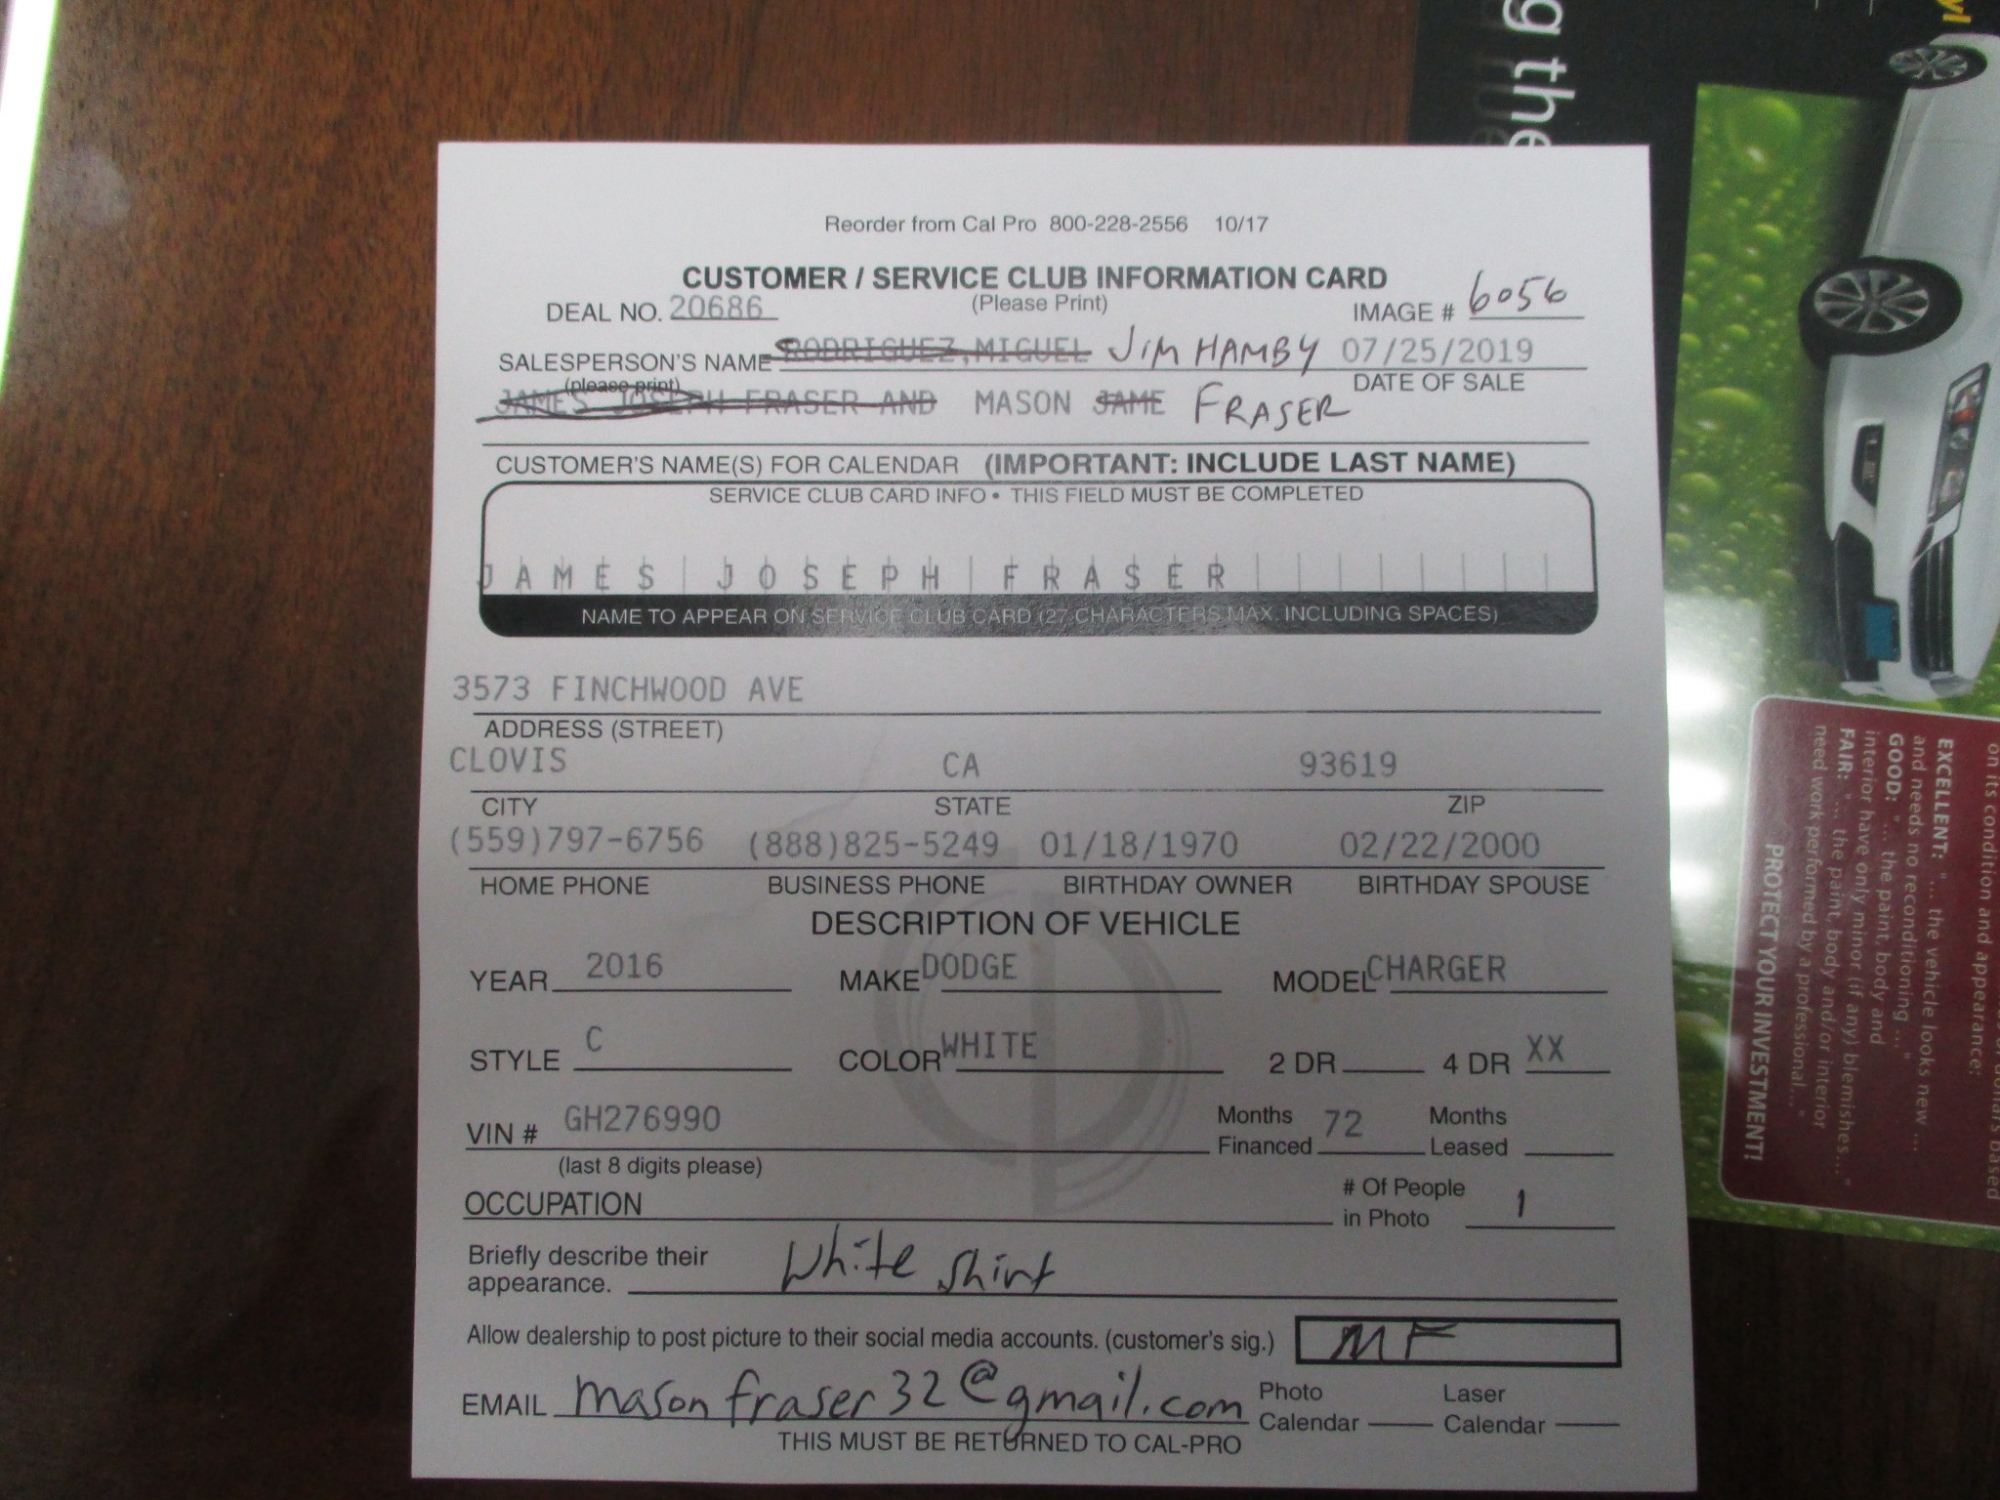 Reorder from Cal Pro 800-228-2556 10/17
CUSTOMER / SERVICE CLUB INFORMATION CARD
DEAL NO. 20686 (Please Print) IMAGE # 6056
SALESPERSON'S NAME RODRIGUEZ,MIGUEL JIM HAMBY 07/25/2019
(please print) DATE OF SALE
JAMES JOSEPH FRASER AND MASON JAME FRASER
CUSTOMER'S NAME(S) FOR CALENDAR (IMPORTANT: INCLUDE LAST NAME)
SERVICE CLUB CARD INFO • THIS FIELD MUST BE COMPLETED
JAMES JOSEPH FRASER
NAME TO APPEAR ON SERVICE CLUB CARD (27 CHARACTERS MAX. INCLUDING SPACES)
3573 FINCHWOOD AVE
ADDRESS (STREET)
CLOVIS CA 93619
CITY STATE ZIP
(559)797-6756 (888)825-5249 01/18/1970 02/22/2000
HOME PHONE BUSINESS PHONE BIRTHDAY OWNER BIRTHDAY SPOUSE
DESCRIPTION OF VEHICLE
YEAR 2016 MAKE DODGE MODEL CHARGER
STYLE C COLOR WHITE 2 DR 4 DR XX
VIN # GH276990 Months Financed 72 Months Leased
(last 8 digits please)
OCCUPATION # Of People in Photo 1
Briefly describe their appearance. White shirt
Allow dealership to post picture to their social media accounts. (customer's sig.) MF
EMAIL masonfraser32@gmail.com Photo Calendar Laser Calendar
THIS MUST BE RETURNED TO CAL-PRO
g the
yl
on its condition and appearance:
EXCELLENT: "... the vehicle looks new ...
and needs no reconditioning ..."
GOOD: "... the paint, body and
interior have only minor (if any) blemishes..."
FAIR: "... the paint, body and/or interior
need work performed by a professional..."
PROTECT YOUR INVESTMENT!